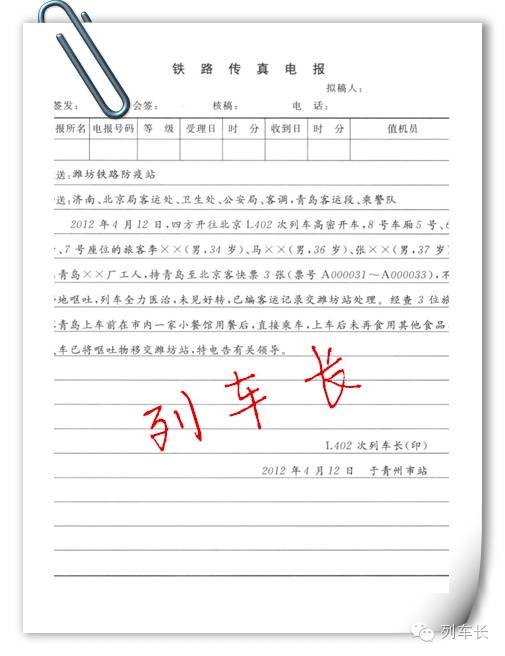 铁路传真电报
拟稿人：
签发： 会签： 核稿： 电话：
报所名 电报号码 等级 受理日 时分 收到日 时分 值机员
送：潍坊铁路防疫站
送：济南、北京局客运处、卫生处、公安局、客调，青岛客运段、乘警队
2012年4月12日，四方开往北京L402次列车高密开车，8号车厢5号、6
、7号座位的旅客李××(男，34岁)、马××(男，36岁)、张××(男，37岁)
青岛××厂工人，持青岛至北京客快票3张(票号A000031～A000033)，不
地呕吐，列车全力医治，未见好转，已编客运记录交潍坊站处理。经查3位旅
青岛上车前在市内一家小餐馆用餐后，直接乘车，上车后未再食用其他食品
车已将呕吐物移交潍坊站，特电告有关领导。
列车长
L402次列车长(印)
2012年4月12日 于青州市站
列车长